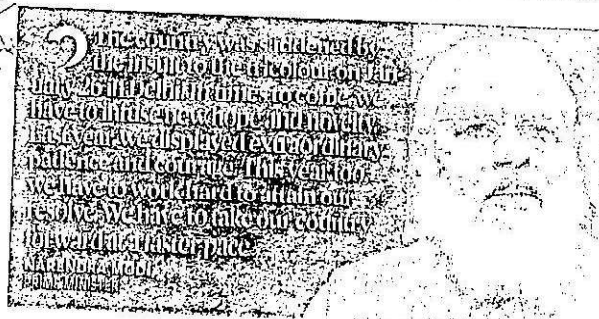 The country was saddened by
the insult to the tricolour on Jan-
uary 26 in Delhi. In times to come, we
have to infuse new hope and novelty.
Last year, we displayed extraordinary
patience and courage. This year too,
we have to work hard to attain our
resolve. We have to take our country
forward at a faster pace
NARENDRA MODI
PRIME MINISTER